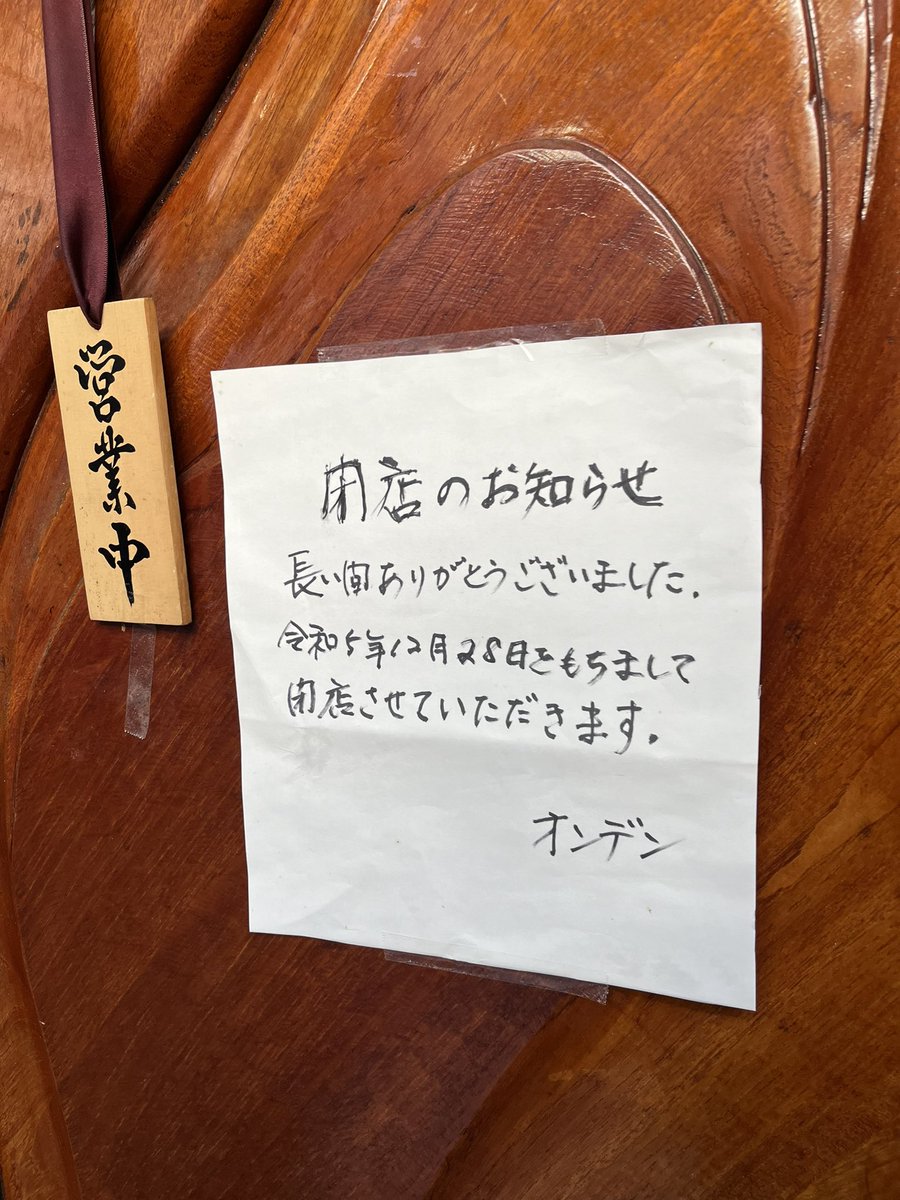 営業中
閉店のお知らせ
長い間ありがとうございました。
令和5年12月28日をもちまして
閉店させていただきます。
オンデン